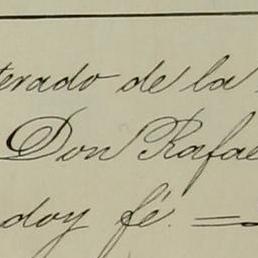 terado de la
Don Rafae
doy fé.